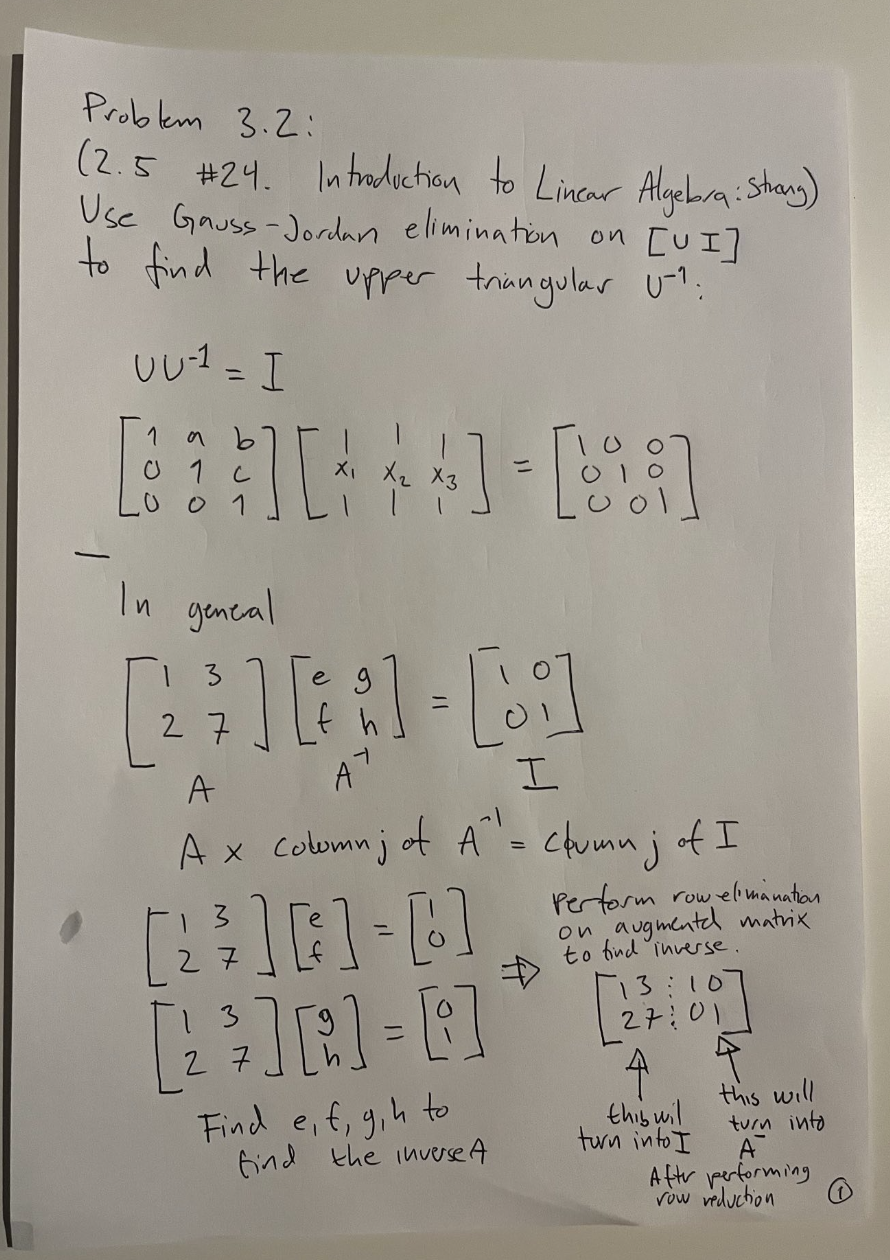 Problem 3.2:
(2.5 #24. Introduction to Linear Algebra: Strang)
Use Gauss-Jordan elimination on [U I]
to find the upper triangular U⁻¹:
UU⁻¹ = I
[1 a b] [| | |] = [1 0 0]
[0 1 c] [x₁ x₂ x₃] [0 1 0]
[0 0 1] [| | |] [0 0 1]
—
In general
[1 3] [e g] = [1 0]
[2 7] [f h] [0 1]
A A⁻¹ I
A x column j of A⁻¹ = column j of I
[1 3] [e] = [1]
[2 7] [f] [0]
[1 3] [g] = [0]
[2 7] [h] [1]
Find e, f, g, h to
find the inverse A
⇒
perform row elimanation
on augmentd matrix
to find inverse.
[1 3 ⋮ 1 0]
[2 7 ⋮ 0 1]
this wil
turn into I
this will
turn into
A⁻
After performing
row reduction
①